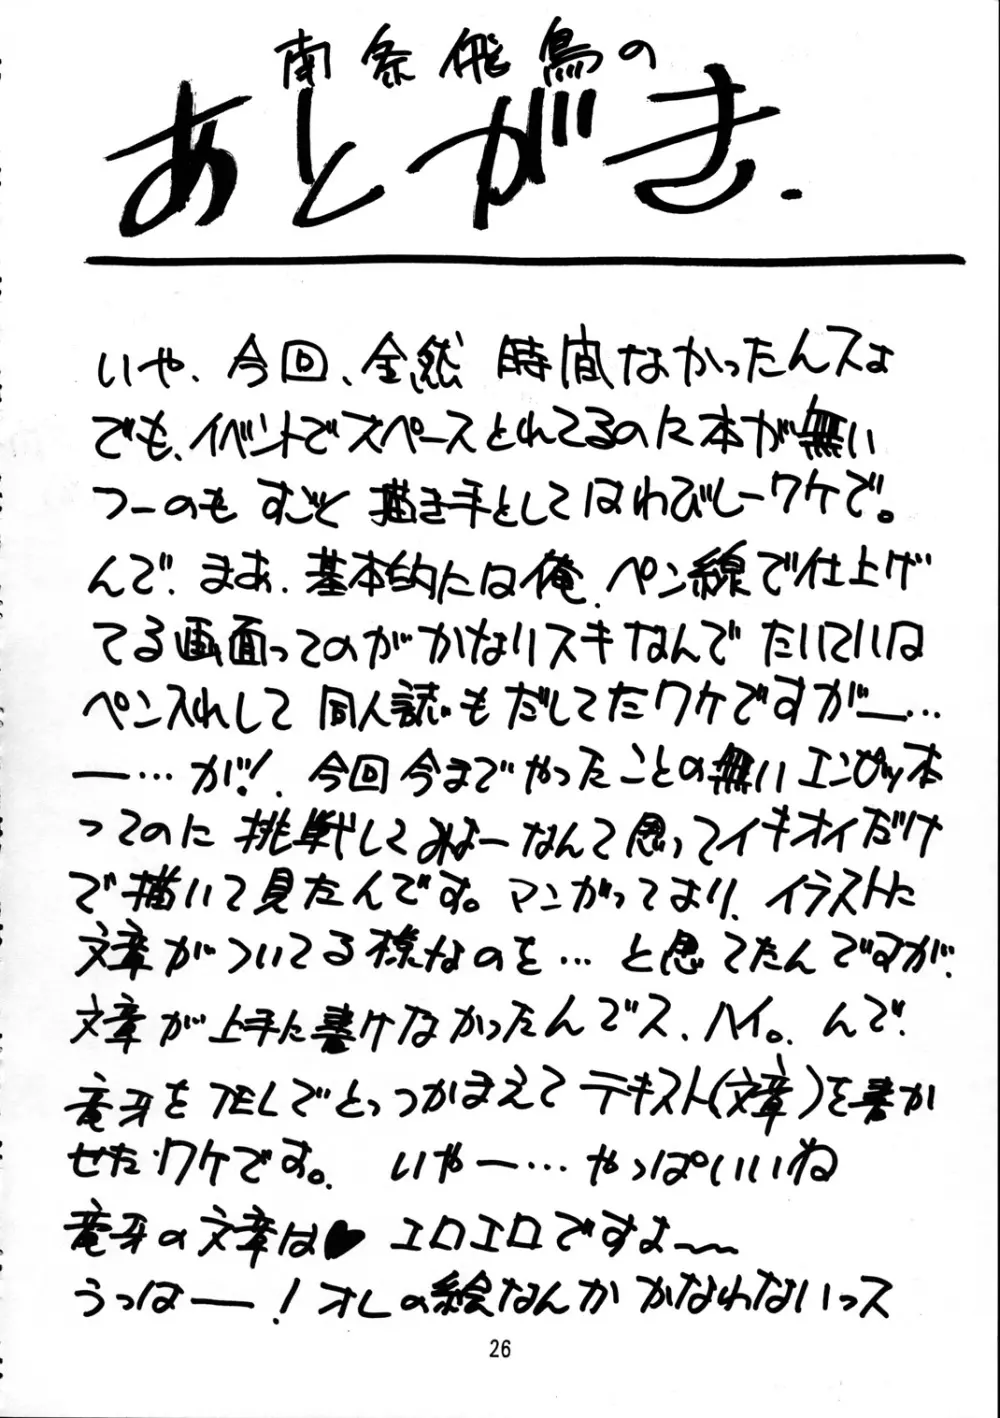 南条飛鳥の
あとがき.
いや、今回、全然 時間なかったんスよ
でも、イベントでスペースとれてるのに本が無い
つーのも すごく 描き手としてはわびしーワケで。
んで、まあ、基本的には俺、ペン線で仕上げ
てる画面ってのがかなりスキなんで たいていは
ペン入れして 同人誌もだしてたワケですがー…
ー…が!、今回今までやったことの無いエンピツ本
ってのに 挑戦してみよーなんて思ってイキオイだけ
で描いて見たんです。マンガってより、イラストに
文章がついてる様なのを… と思ってたんですが、
文章が上手に書けなかったんでス、ハイ。んで、
竜牙をTELでとっつかまえて テキスト(文章)を書か
せたワケです。 いやー… やっぱいいね
竜牙の文章は♥ エロエロですよ〜
うっはー! オレの絵なんか かなわないっス
26